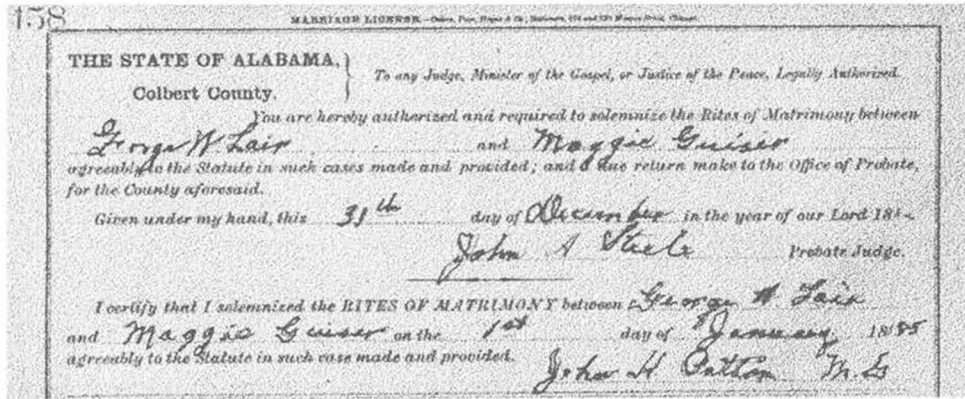 158
MARRIAGE LICENSE
THE STATE OF ALABAMA,
Colbert County.
To any Judge, Minister of the Gospel, or Justice of the Peace, Legally Authorized.
You are hereby authorized and required to solemnize the Rites of Matrimony between
George W Lair and Maggie Guiser
agreeably to the Statute in such cases made and provided; and a due return make to the Office of Probate,
for the County aforesaid.
Given under my hand, this 31th day of December in the year of our Lord 188
John A Steele Probate Judge.
I certify that I solemnized the RITES OF MATRIMONY between George W Lair
and Maggie Guiser on the 1st day of January 1885
agreeably to the Statute in such case made and provided.
John H Patton M G